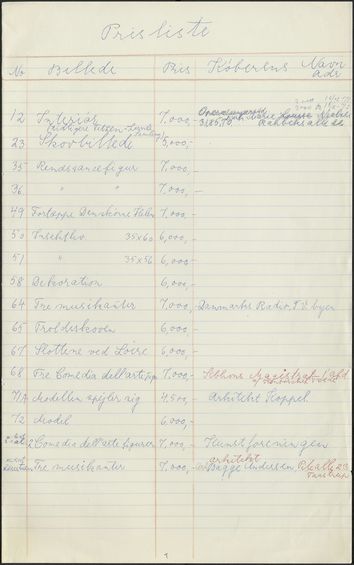 Prisliste
No Billede Pris Køberens Navn
adr
12 Interiør 7,000,-
23 Skovbillede 5,000,-
35 Renæssancefigur 7,000,-
36 " " 7,000,-
49 Fortæppe Den skønne Helen 7,000,-
50 35x60 6,000,-
51 " 35x56 6,000,-
58 Dekoration 6,000,-
64 Tre musikanter 7,000,- Danmarks Radio. T.V. byen
65 Troldeskoven 6,000,-
67 Slottene ved Loire 6,000,-
68 Tre Comedia dell'arte 7,000,- Kbhvns Magistrat
71A Modellen spejler sig 4,500,- Arkitekt Koppel
72 Model 6,000,-
Comedia dell'arte figurer 7,000,- Kunstforeningen
arkitekt
Tre musikanter 7,000,- Bagge Andersen,